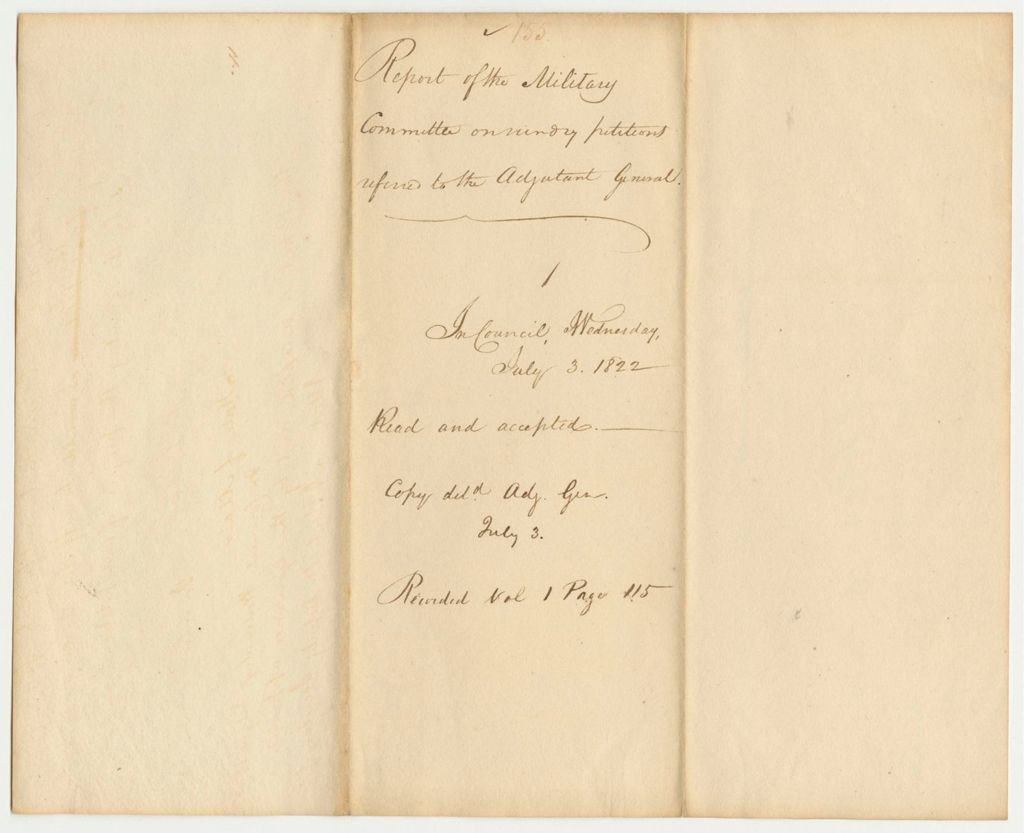 ✓ 155.
Report of the Military
Committee on sundry petitions
referred to the Adjutant General.
1
In Council, Wednesday,
July 3. 1822
Read and accepted.
Copy deld Adj. Gen.
July 3.
Recorded Vol 1 Page 115